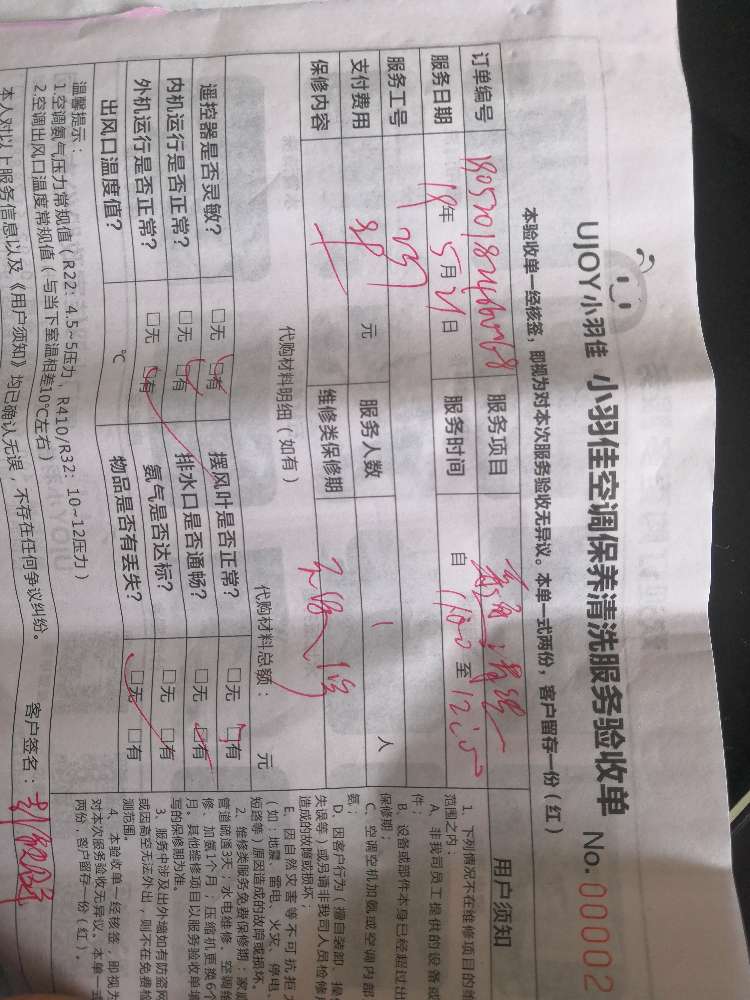 UJOY小羽佳 小羽佳空调保养清洗服务验收单 No. 00002
本验收单一经核签，即视为对本次服务验收无异议。本单一式两份，客户留存一份（红）
订单编号 服务项目
服务日期 19年5月21日 服务时间 自 1100 至
服务工号 服务人数 1 人
支付费用 元
保修内容 维修类保修期
代购材料明细（如有） 代购材料总额： 元
遥控器是否灵敏？ □无 □有 摆风叶是否正常？ □无 □有
内机运行是否正常？ □无 □有 排水口是否通畅？ □无 □有
外机运行是否正常？ □无 □有 氨气是否达标？ □无 □有
出风口温度值？ ℃ 物品是否有丢失？ □无 □有
温馨提示：
1.空调氨气压力常规值（R22：4.5~5压力、R410/R32：10~12压力）
2.空调出风口温度常规值（与当下室温相差10℃左右）
本人对以上服务信息以及《用户须知》均已确认无误，不存在任何争议纠纷。 客户签名：
用户须知
1、下列情况不在维修项目的维
范围之内：
A、非我司员工提供的设备或
件；
B、设备或部件本身已经超过出
保修期；
C、空调空机加氨或空调内部
氨；
D、因客户行为（擅自装卸、操
失误等）或另请非我司人员检修
造成的故障或损坏；
E、因自然灾害等不可抗拒
（如：地震、雷电、火灾、停电、
短路等）原因造成的故障或损坏。
2、维修类服务免费保修期：家庭
管道疏通3天；水电维修、空调维
修、加氨1个月；压缩机更换6个
月。其他维修项目以服务验收单填
写的保修期为准。
3、服务中涉及出外墙如有防盗网
或因高空无法外出，则不在免费检
测范围。
4、本验收单一经核签，即视为
对本次服务验收无异议。本单一式
两份，客户留存一份（红）。